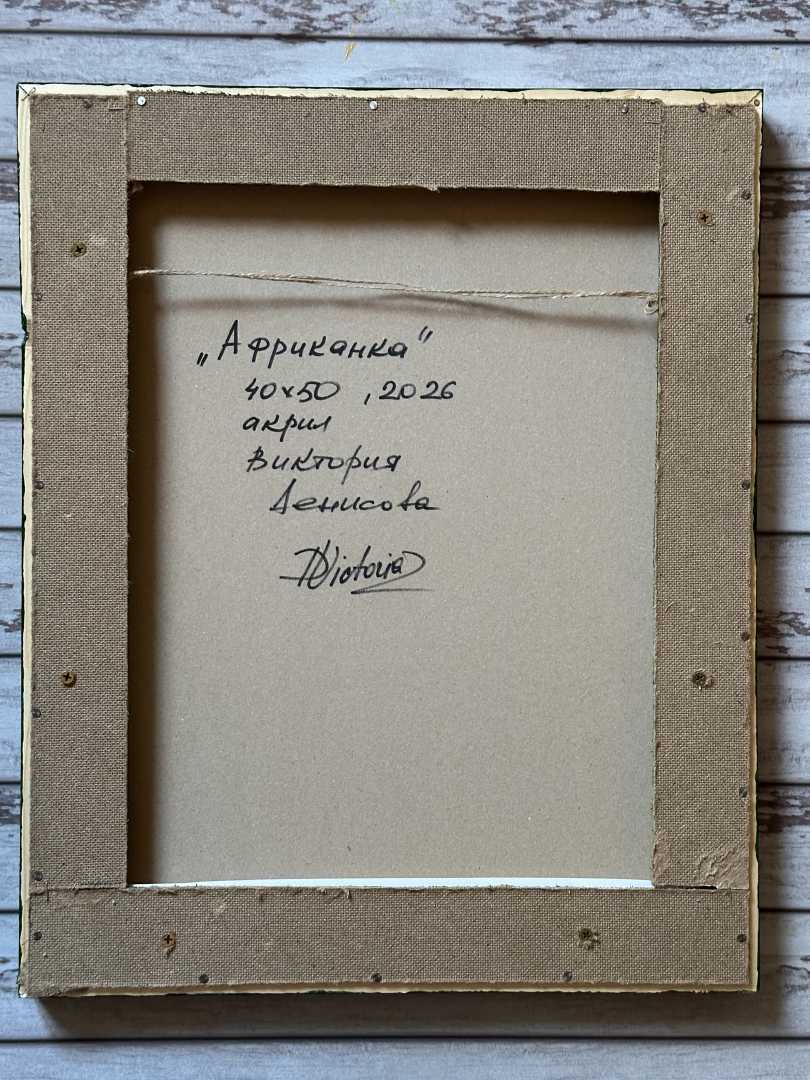 „Африканка“
40x50 ,2026
акрил
Виктория
Денисова
DVictoria